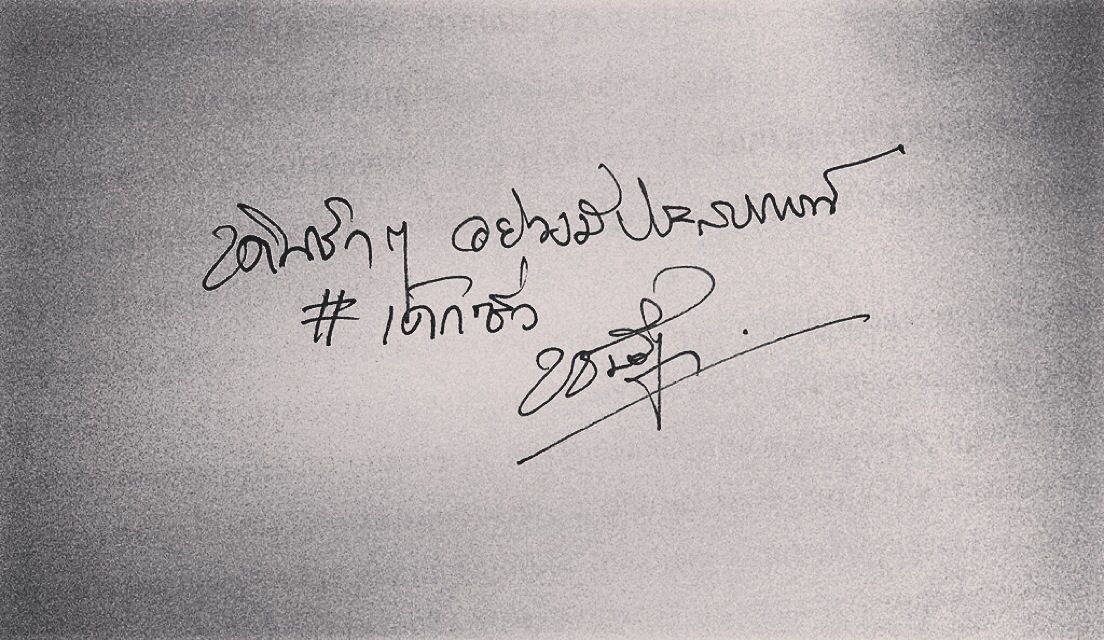 เดินช้าๆ อย่างมีประสบการณ์
#เด็กซิ่ว